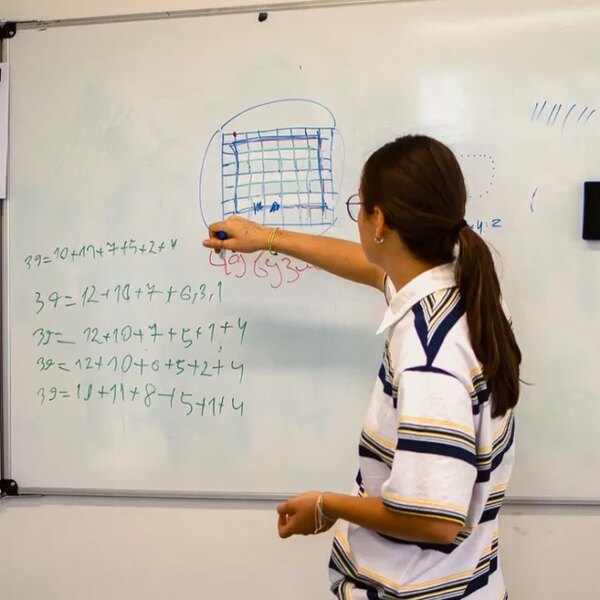 39=10+11+7+5+2+4
39=12+10+7+6,3,1
39=12+10+7+5+1+4
39=12+10+6+5+2+4
39=11+11+8+5+1+4